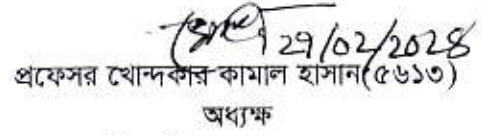 29/02/2028
প্রফেসর খোন্দকার কামাল হাসান(৫৬১৩)
অধ্যক্ষ